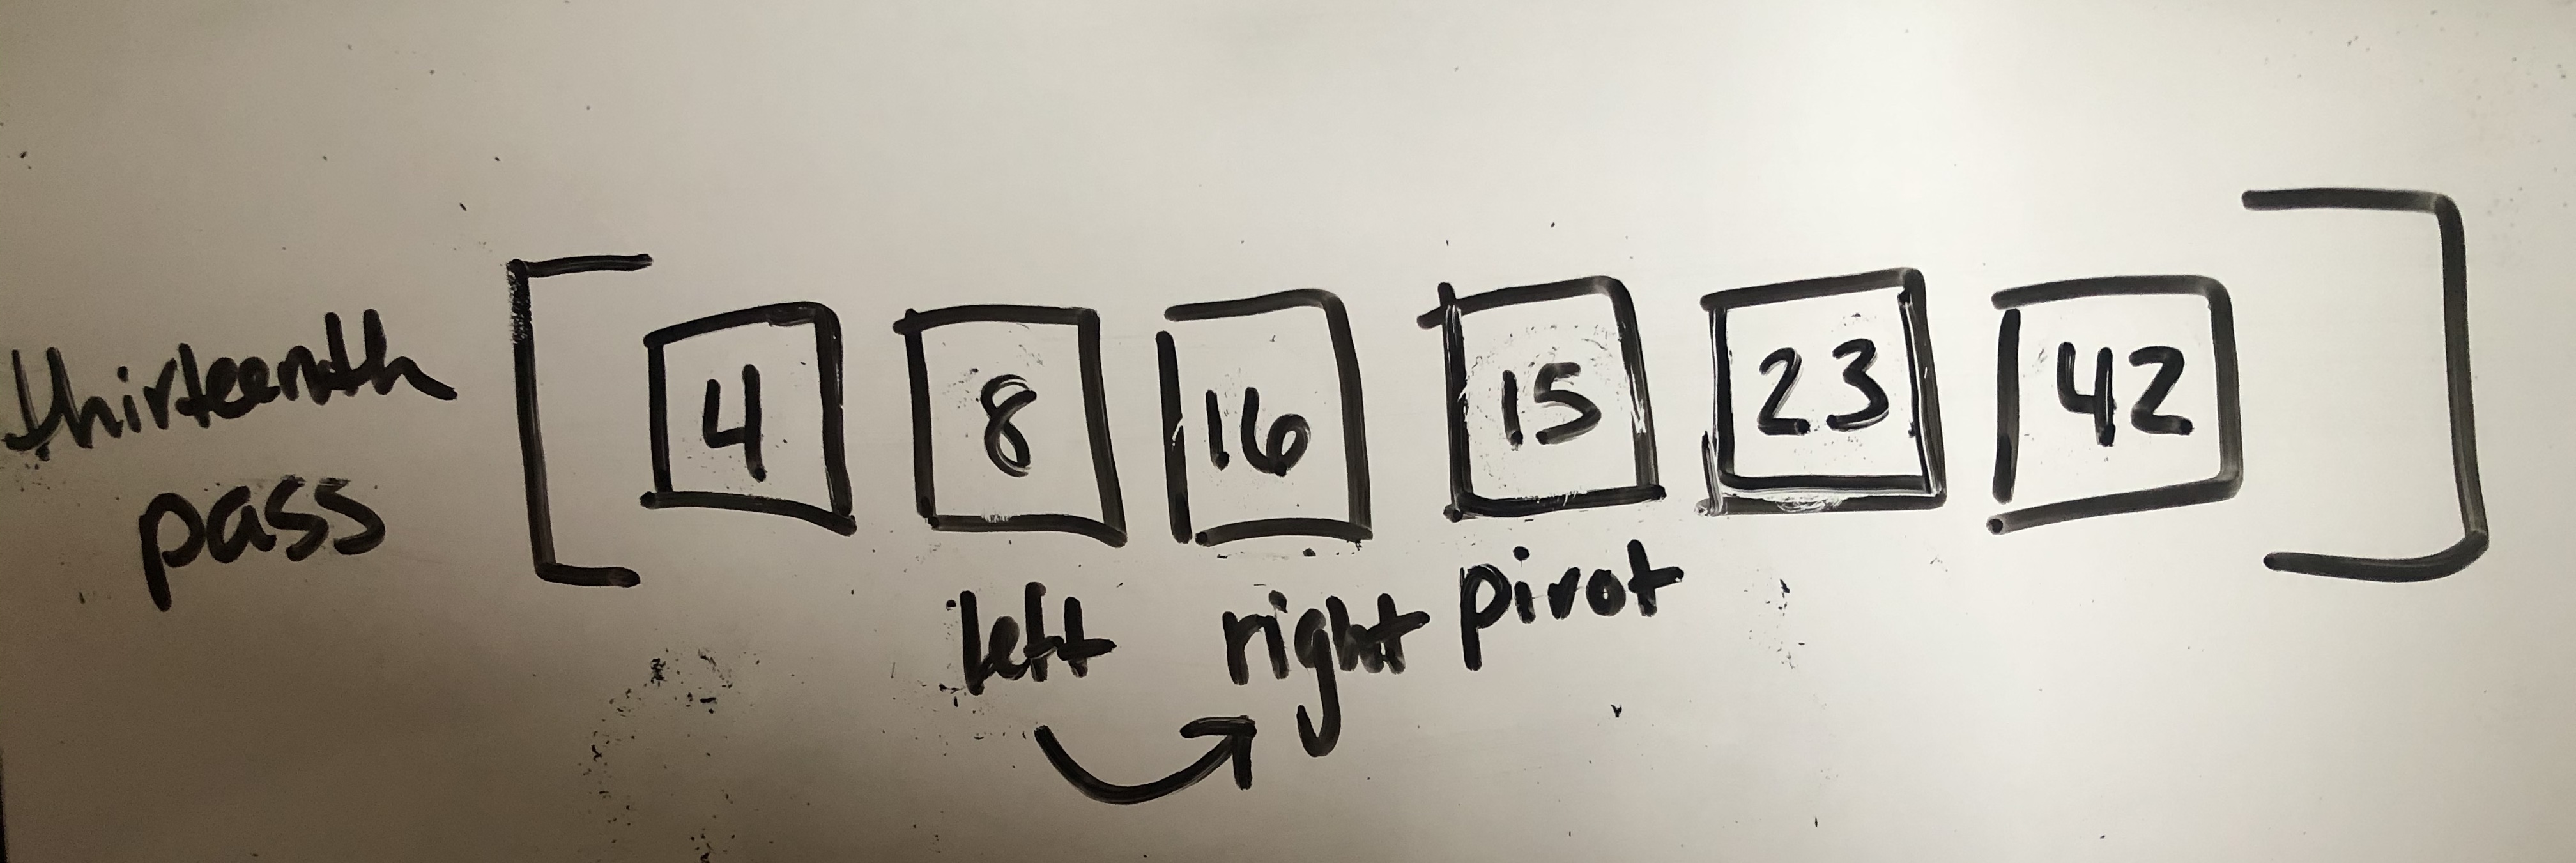 thirteenth
pass
[ 4 8 16 15 23 42 ]
left right pivot